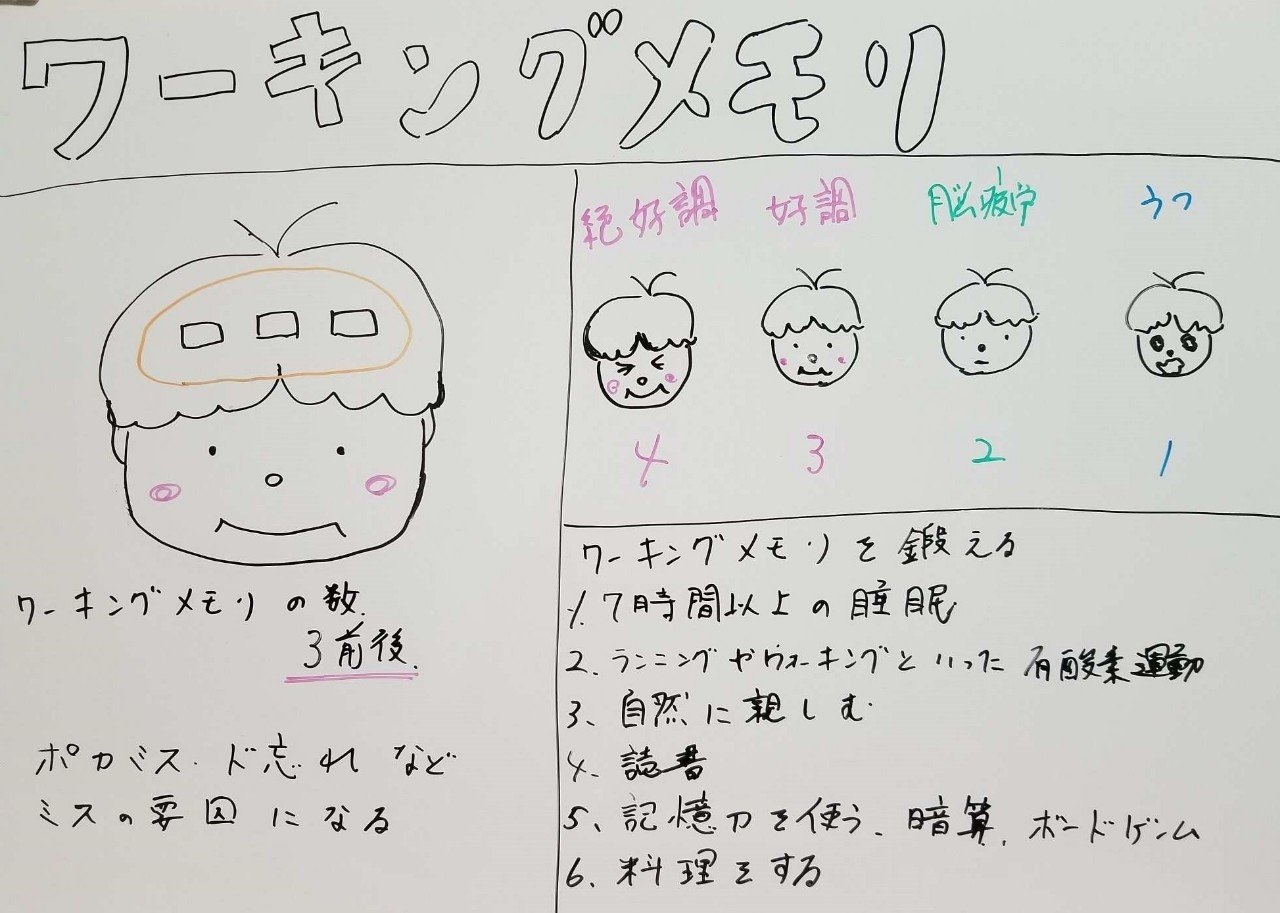 ワーキングメモリ
ワーキングメモリの数
3前後.
ポカミス・ド忘れなど
ミスの要因になる
絶好調 好調 脳疲労 うつ
4 3 2 1
ワーキングメモリを鍛える
1. 7時間以上の睡眠
2. ランニングやウォーキングといった有酸素運動
3、自然に親しむ
4、読書
5、記憶力を使う、暗算、ボードゲーム
6、料理をする